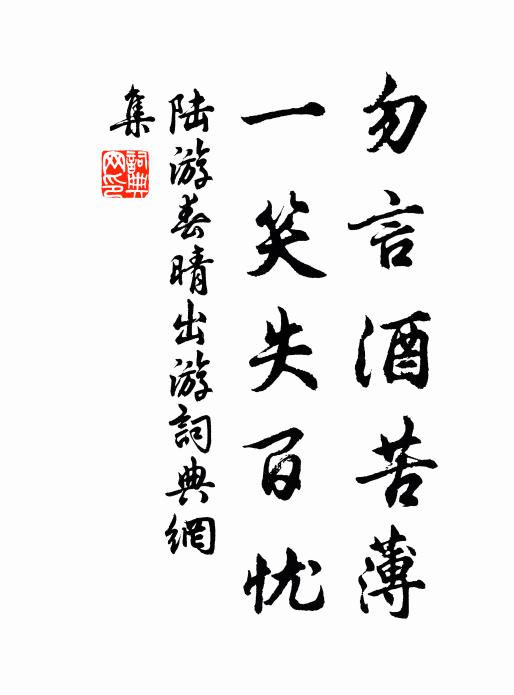 勿言酒苦薄
一笑失百忧
陆游春晴出游詞典網
集
詞典网印